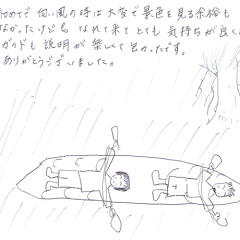 初めてで 向い風の時は大変で景色を見る余裕も
なかったけども なれて来てとても 気持ちが良く
ガイドも 説明が 楽しくて 良かったです。
ありがとうございました。